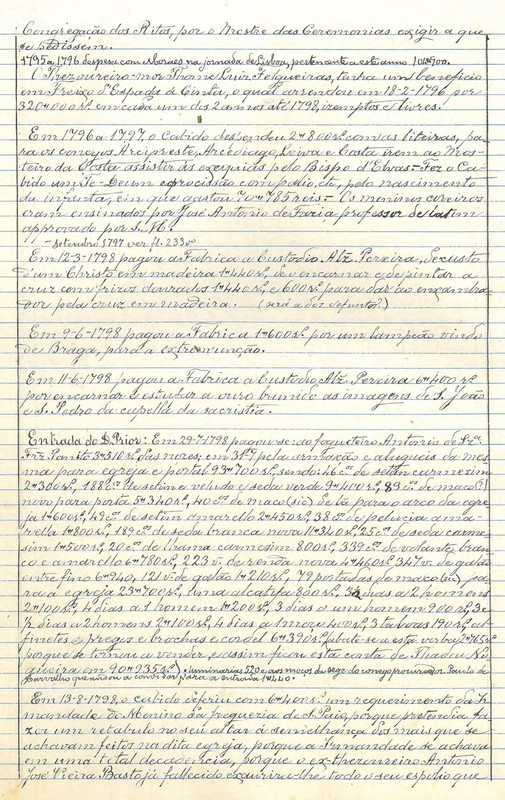 Congregação dos Ritos, por o Mestre das Ceremonias exigir a que
se pedissem.
1795 a 1796 despesa com Moraes na jornada de Lisboa, pertencente a este anno 104$900.
O Thezoureiro-mor Thome Luiz Felgueiras, tinha um beneficio
em Freixo d'Espada á Cinta, o qual arrendou em 18-2-1796 por
320$000 rs. em cada um dos 2 annos até 1798, izemptos e livres.
Em 1796 a 1797 o Cabido despendeu 2$800 rs. com as liteiras, pa-
ra os conegos Arcipreste, Arcediago, Leiva e Costa irem ao Mos-
teiro da Costa assistir ás exequias pelo Bispo d'Elvas = Fez o Ca-
bido um Te-Deum e procissão com palio, etc, pelo nascimento
da infanta, em que gastou 70$785 reis = Os meninos coreiros
eram ensinados por José Antonio de Faria professor de latim
approvado por S. M.
- setembro 1797 ver fl. 233 vº
Em 12-3-1798 pagou a Fabrica a Custodio Alz. Pereira, de custo
d'um Christo em madeira 1$440 rs., de encarnar e de pintar a
cruz com frizos dourados 1$440 rs. e 600 rs. para dar ao enxambra-
dor pela cruz em madeira. (será a dos defuntos?)
Em 9-6-1798 pagou a Fabrica 1$600 rs. por um lampeão vindo
de Braga, para a extremunção.
Em 11-6-1798 pagou a Fabrica a Custodio Alz. Pereira 6$400 rs.
por encarnar e estufar a ouro brunido as imagens de S. João
e S. Pedro da capella da sacristia.
Entrada do D. Prior: Em 29-7-1798 pagou-se: ao fogueteiro Antonio de
3$510 rs., das nores, em 31-7 pela armação e alugueis da mes-
ma para egreja e portal 93$700 rs., sendo: 46 cos. de setim carmezim
2$300 rs., 188 cos. de setim e veludo e seda verde 9$400 rs., 89 cos. de maco(?)
novo para porta 5$340 rs., 40 cos. de maco (sic) de lã para o arco da egre-
ja 1$600 rs., 49 cos. de setim amarello 2$450 rs., 38 cos. de pelucia ama-
rella 1$800 rs., 189 cos. de seda branca nova 11$340 rs., 25 cos. de seda carme-
sim 1$500 rs., 20 cos. de lhama carmesim 800 rs., 339 cos. de volante bran-
co e amarello 6$780 rs., 223 v. de renda nova 4$460 rs., 347 v. de galão
entre fino 6$940, 121 v. de galão 1$210 rs., 79 portadas de maco (sic), pa-
ra a egreja 23$700 rs., uma alcatifa 800 rs., 3 ½ dias a 2 homens
2$100 rs., 4 dias a 1 homem 1$200 rs., 3 dias a um homem 900 rs., 3 e
½ dias a 2 homens 2$100 rs., 4 dias a 1 moço 400 rs., 3 taboas 190 rs., al-
finetes, pregos e brochas e cordel 6$390 rs. abate-se a esta verba 2$765 rs.
porque se tornou a vender, e assim ficou esta conta de Thadeu No-
gueira em 90$935 rs.), luminarias 520 e aos moços da sege do conego procurador Paulo de
Carvalho quando foi a convidar para a entrada 1$440.
Em 13-8-1798, o cabido deferiu com 6$400 rs. um requerimento da Ir-
mandade do Menino da freguezia de S. Paio, porque pretendia fa-
zer um retabulo no seu altar á semelhança dos mais que se
achavam feitos na dita egreja, porque a Irmandade se achava
em uma total decadencia, porque o ex-thezoureiro Antonio
José Vieira Basto já fallecido exaurira-lhe todo o seu espolio que